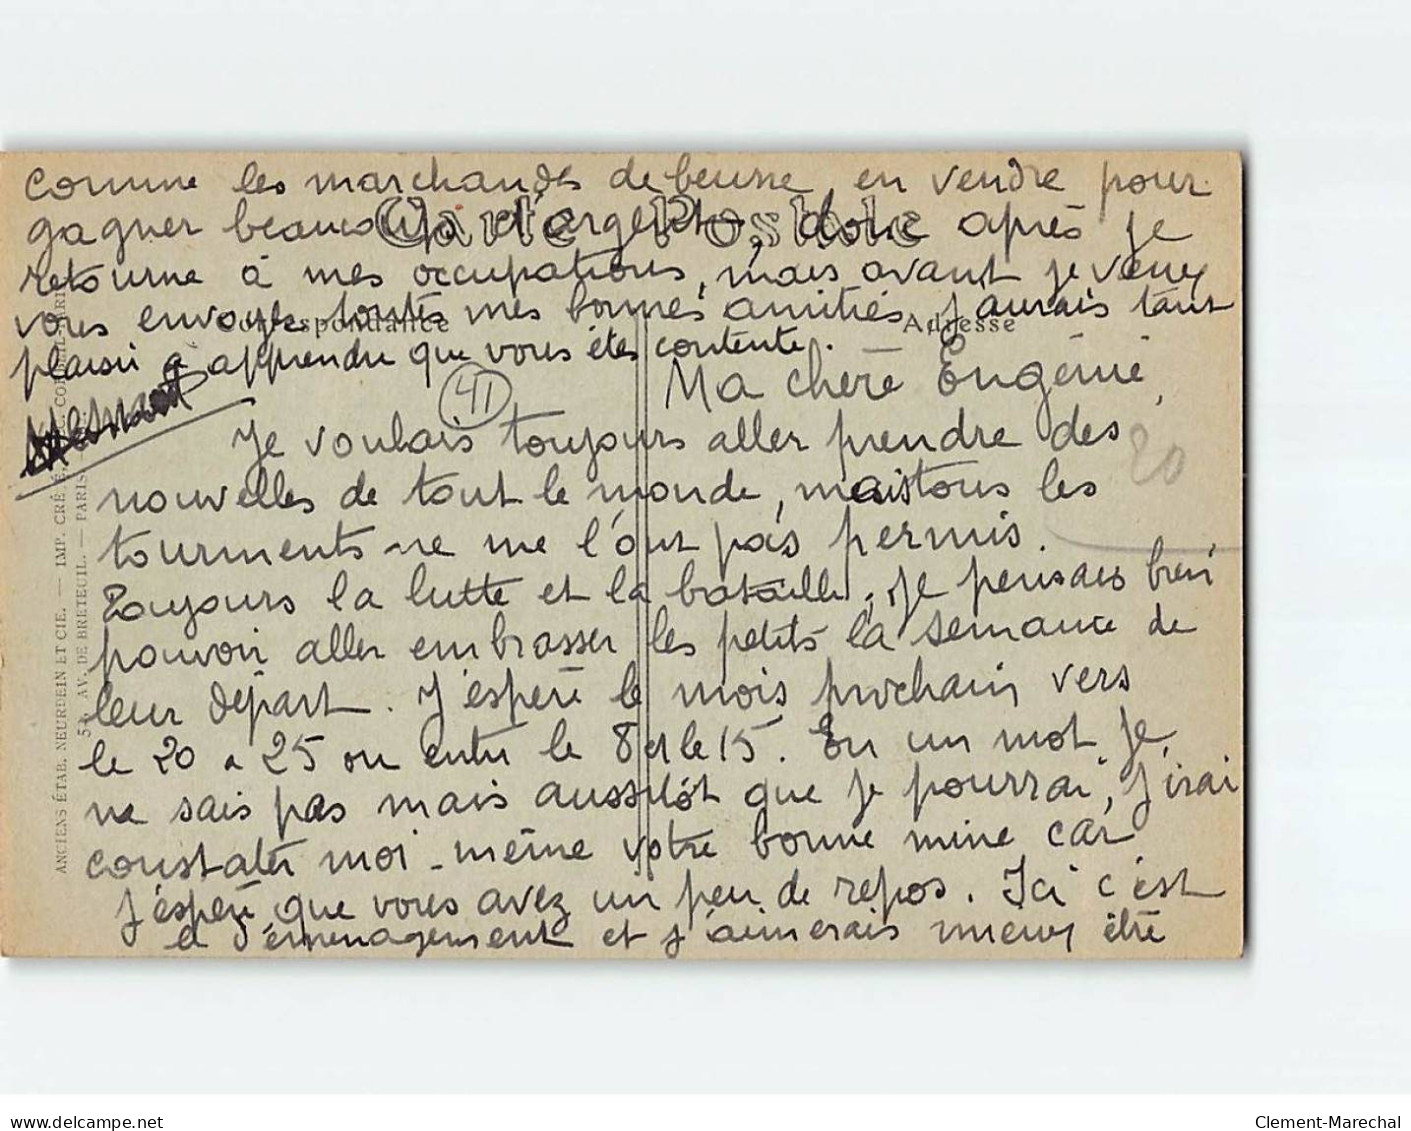 comme les marchands de beurre, en vendre pour
gagner beaucoup d'argent, donc après je
Carte Postale
retourne à mes occupations, mais avant je veux
vous envoyer toutes mes bonnes amitiés, j'aurais tant
Correspondance
Adresse
plaisir à apprendre que vous êtes contente.
41
Ma chère Eugénie,
Je voulais toujours aller prendre des
20
nouvelles de tout le monde, mais tous les
tourments ne me l'ont pas permis.
Toujours la lutte et la bataille, je pensais bien
pouvoir aller embrasser les petits la semaine de
leur départ. J'espère le mois prochain vers
le 20 à 25 ou entre le 8 et le 15. En un mot je
ne sais pas mais aussitôt que je pourrai, j'irai
constater moi-même votre bonne mine car
j'espère que vous avez un peu de repos. Ici c'est
le déménagement et j'aimerais mieux être
ANCIENS ÉTAB. NEURDEIN ET CIE. — IMP. CRÉTÉ.
52, AV. DE BRETEUIL. — PARIS
delcampe.net
Clement-Marechal